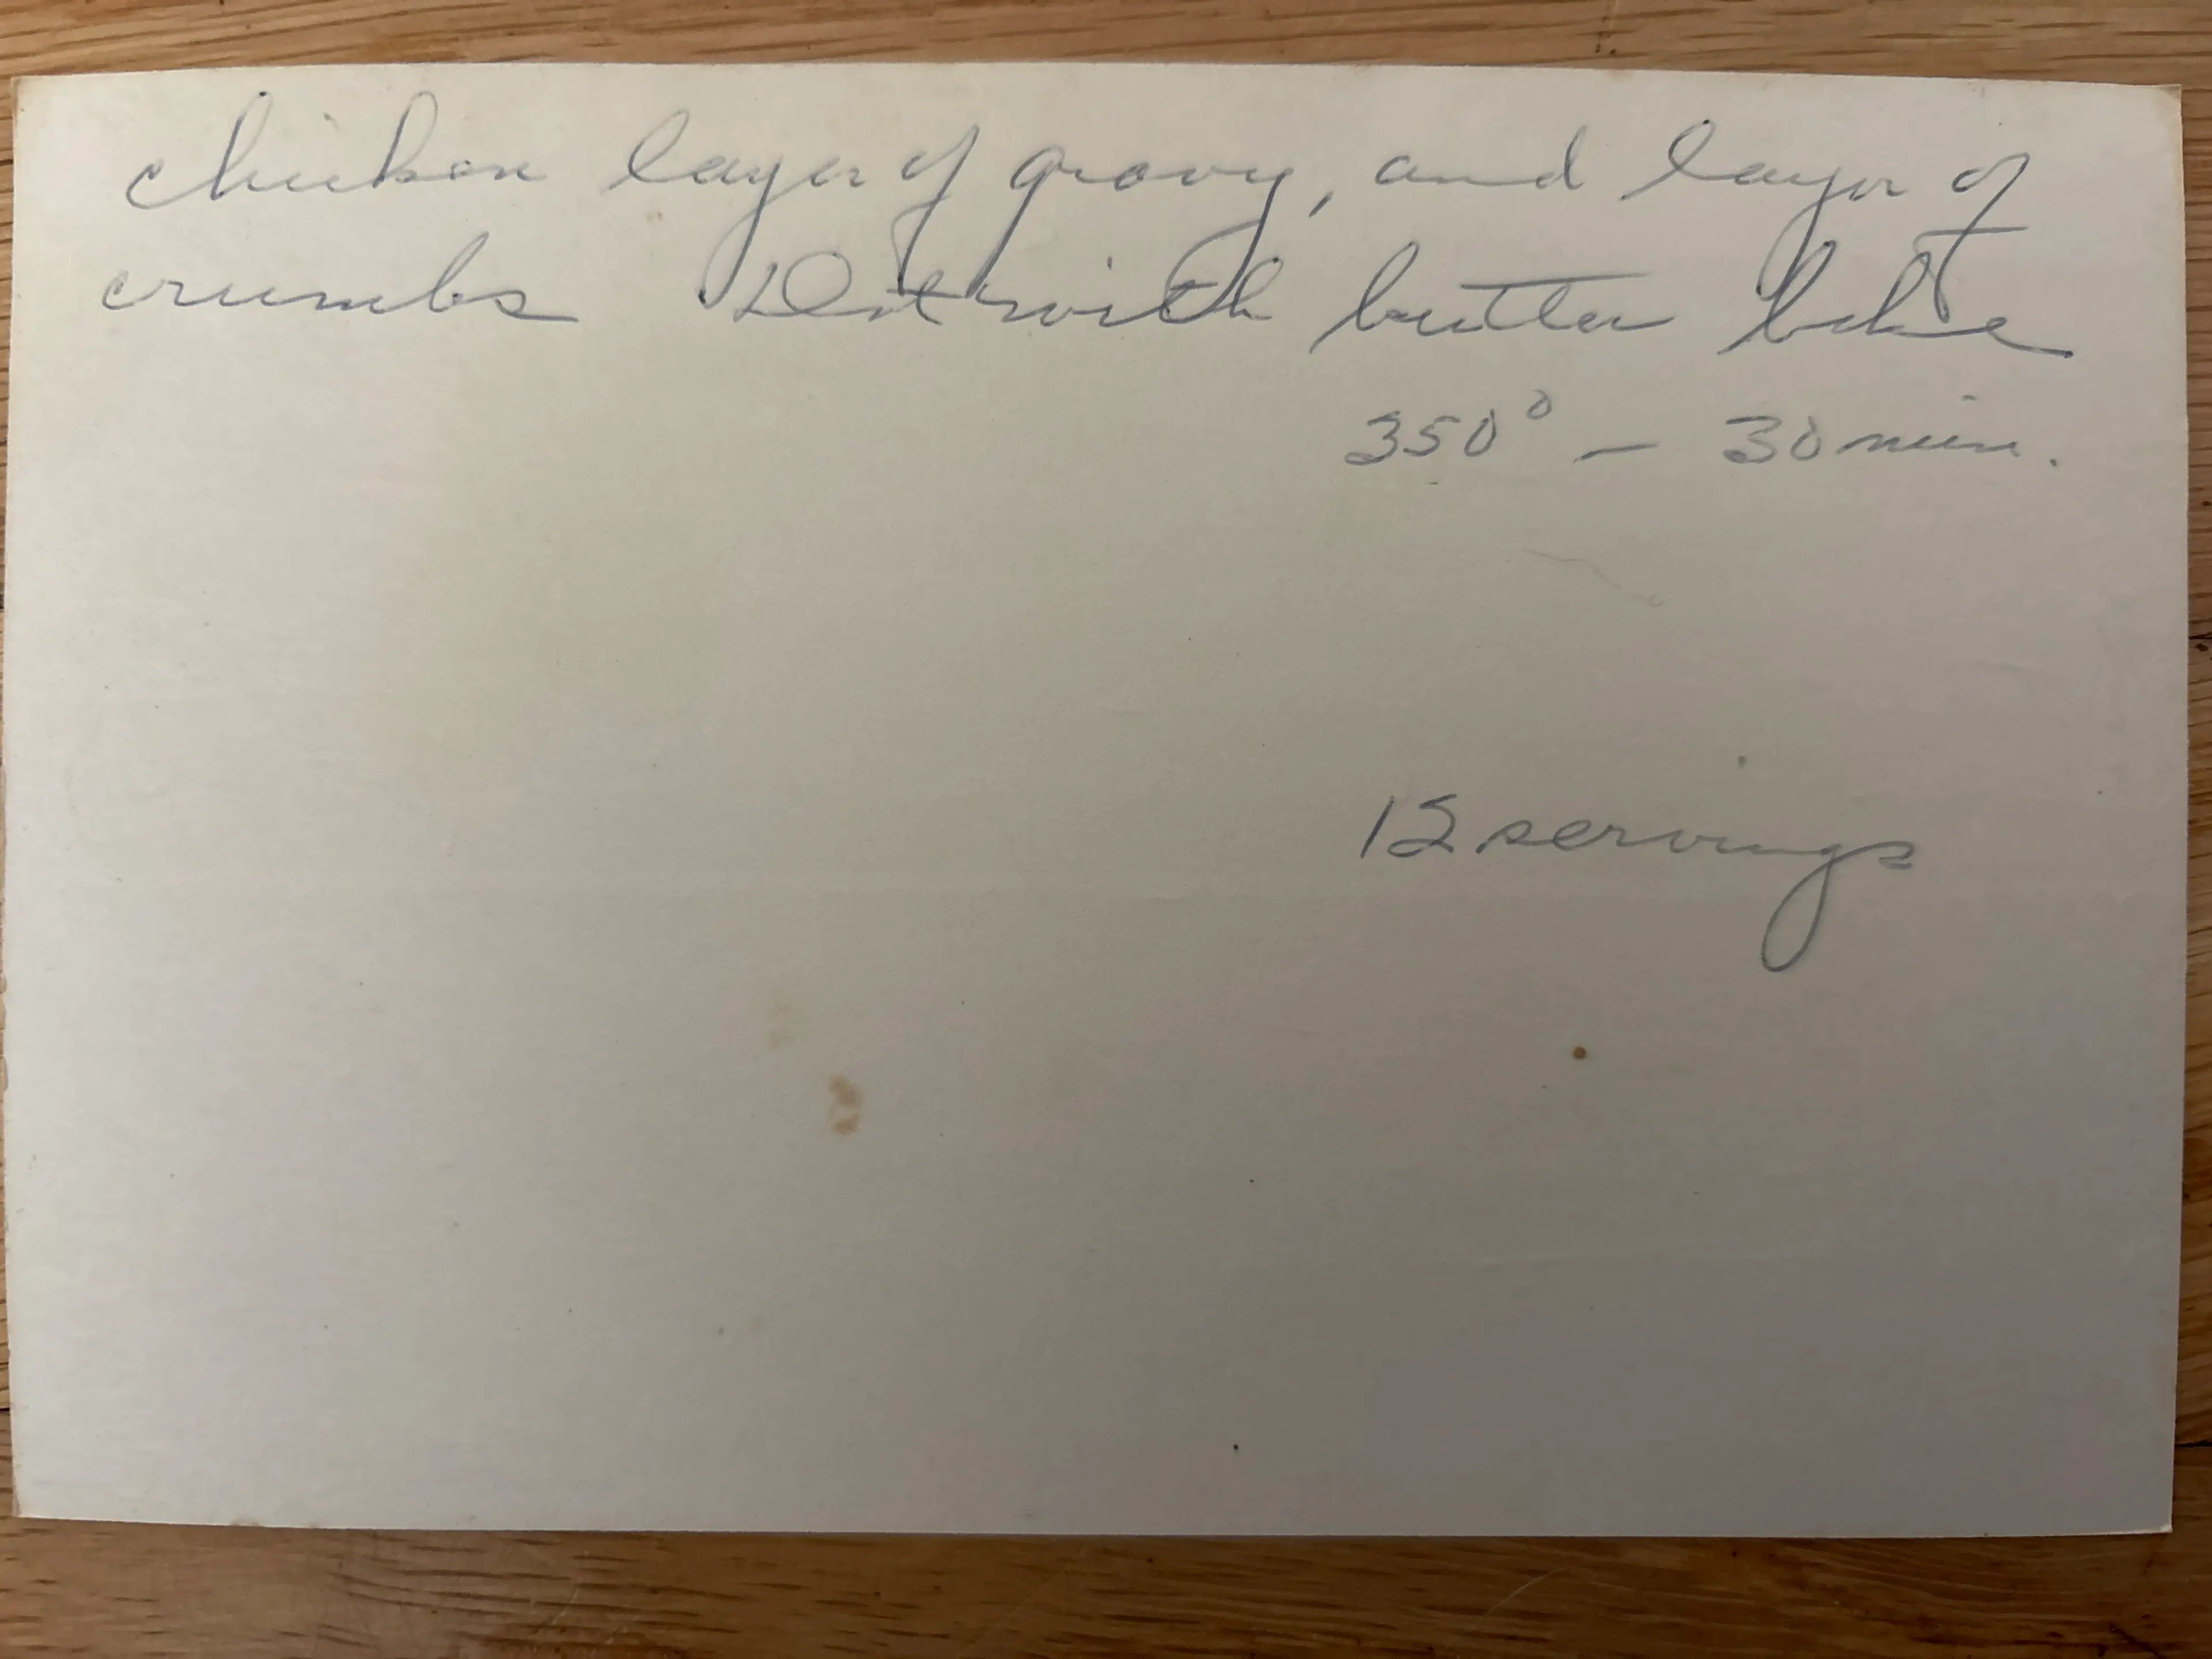 chicken layer of gravy, and layer of
crumbs. Dot with butter bake
350° – 30 min.
12 servings